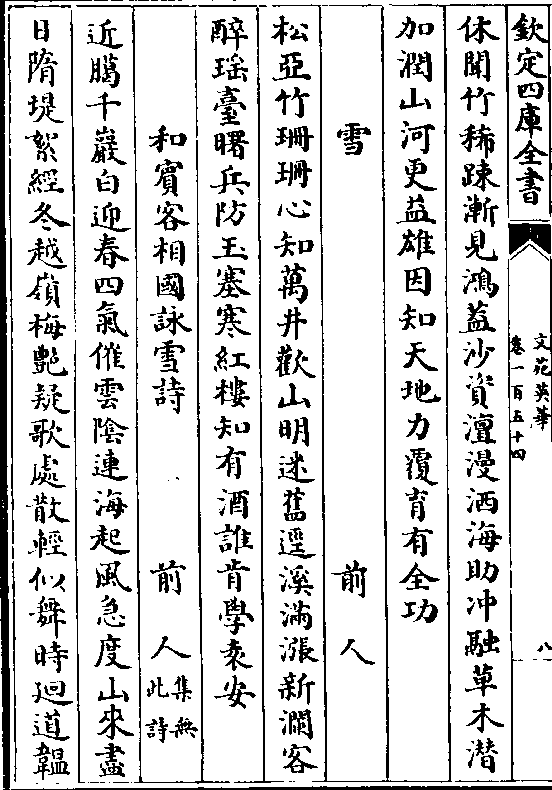 欽定四庫全書
文苑英華
卷一百五十四
八
休聞竹稀踈漸見鴻益沙資澶漫洒海助冲融草木潛
加潤山河更益雄因知天地力覆育有全功
雪 前人
松亞竹珊珊心知萬井歡山明迷舊逕溪滿漲新瀾客
醉瑶臺曙兵防玉塞寒紅樓知有酒誰肯學袁安
和賓客相國詠雪詩 前人 集無此詩
近臘千巖白迎春四氣催雲陰連海起風急度山來盡
日隋堤絮經冬越嶺梅艷疑歌處散輕似舞時廻道韞